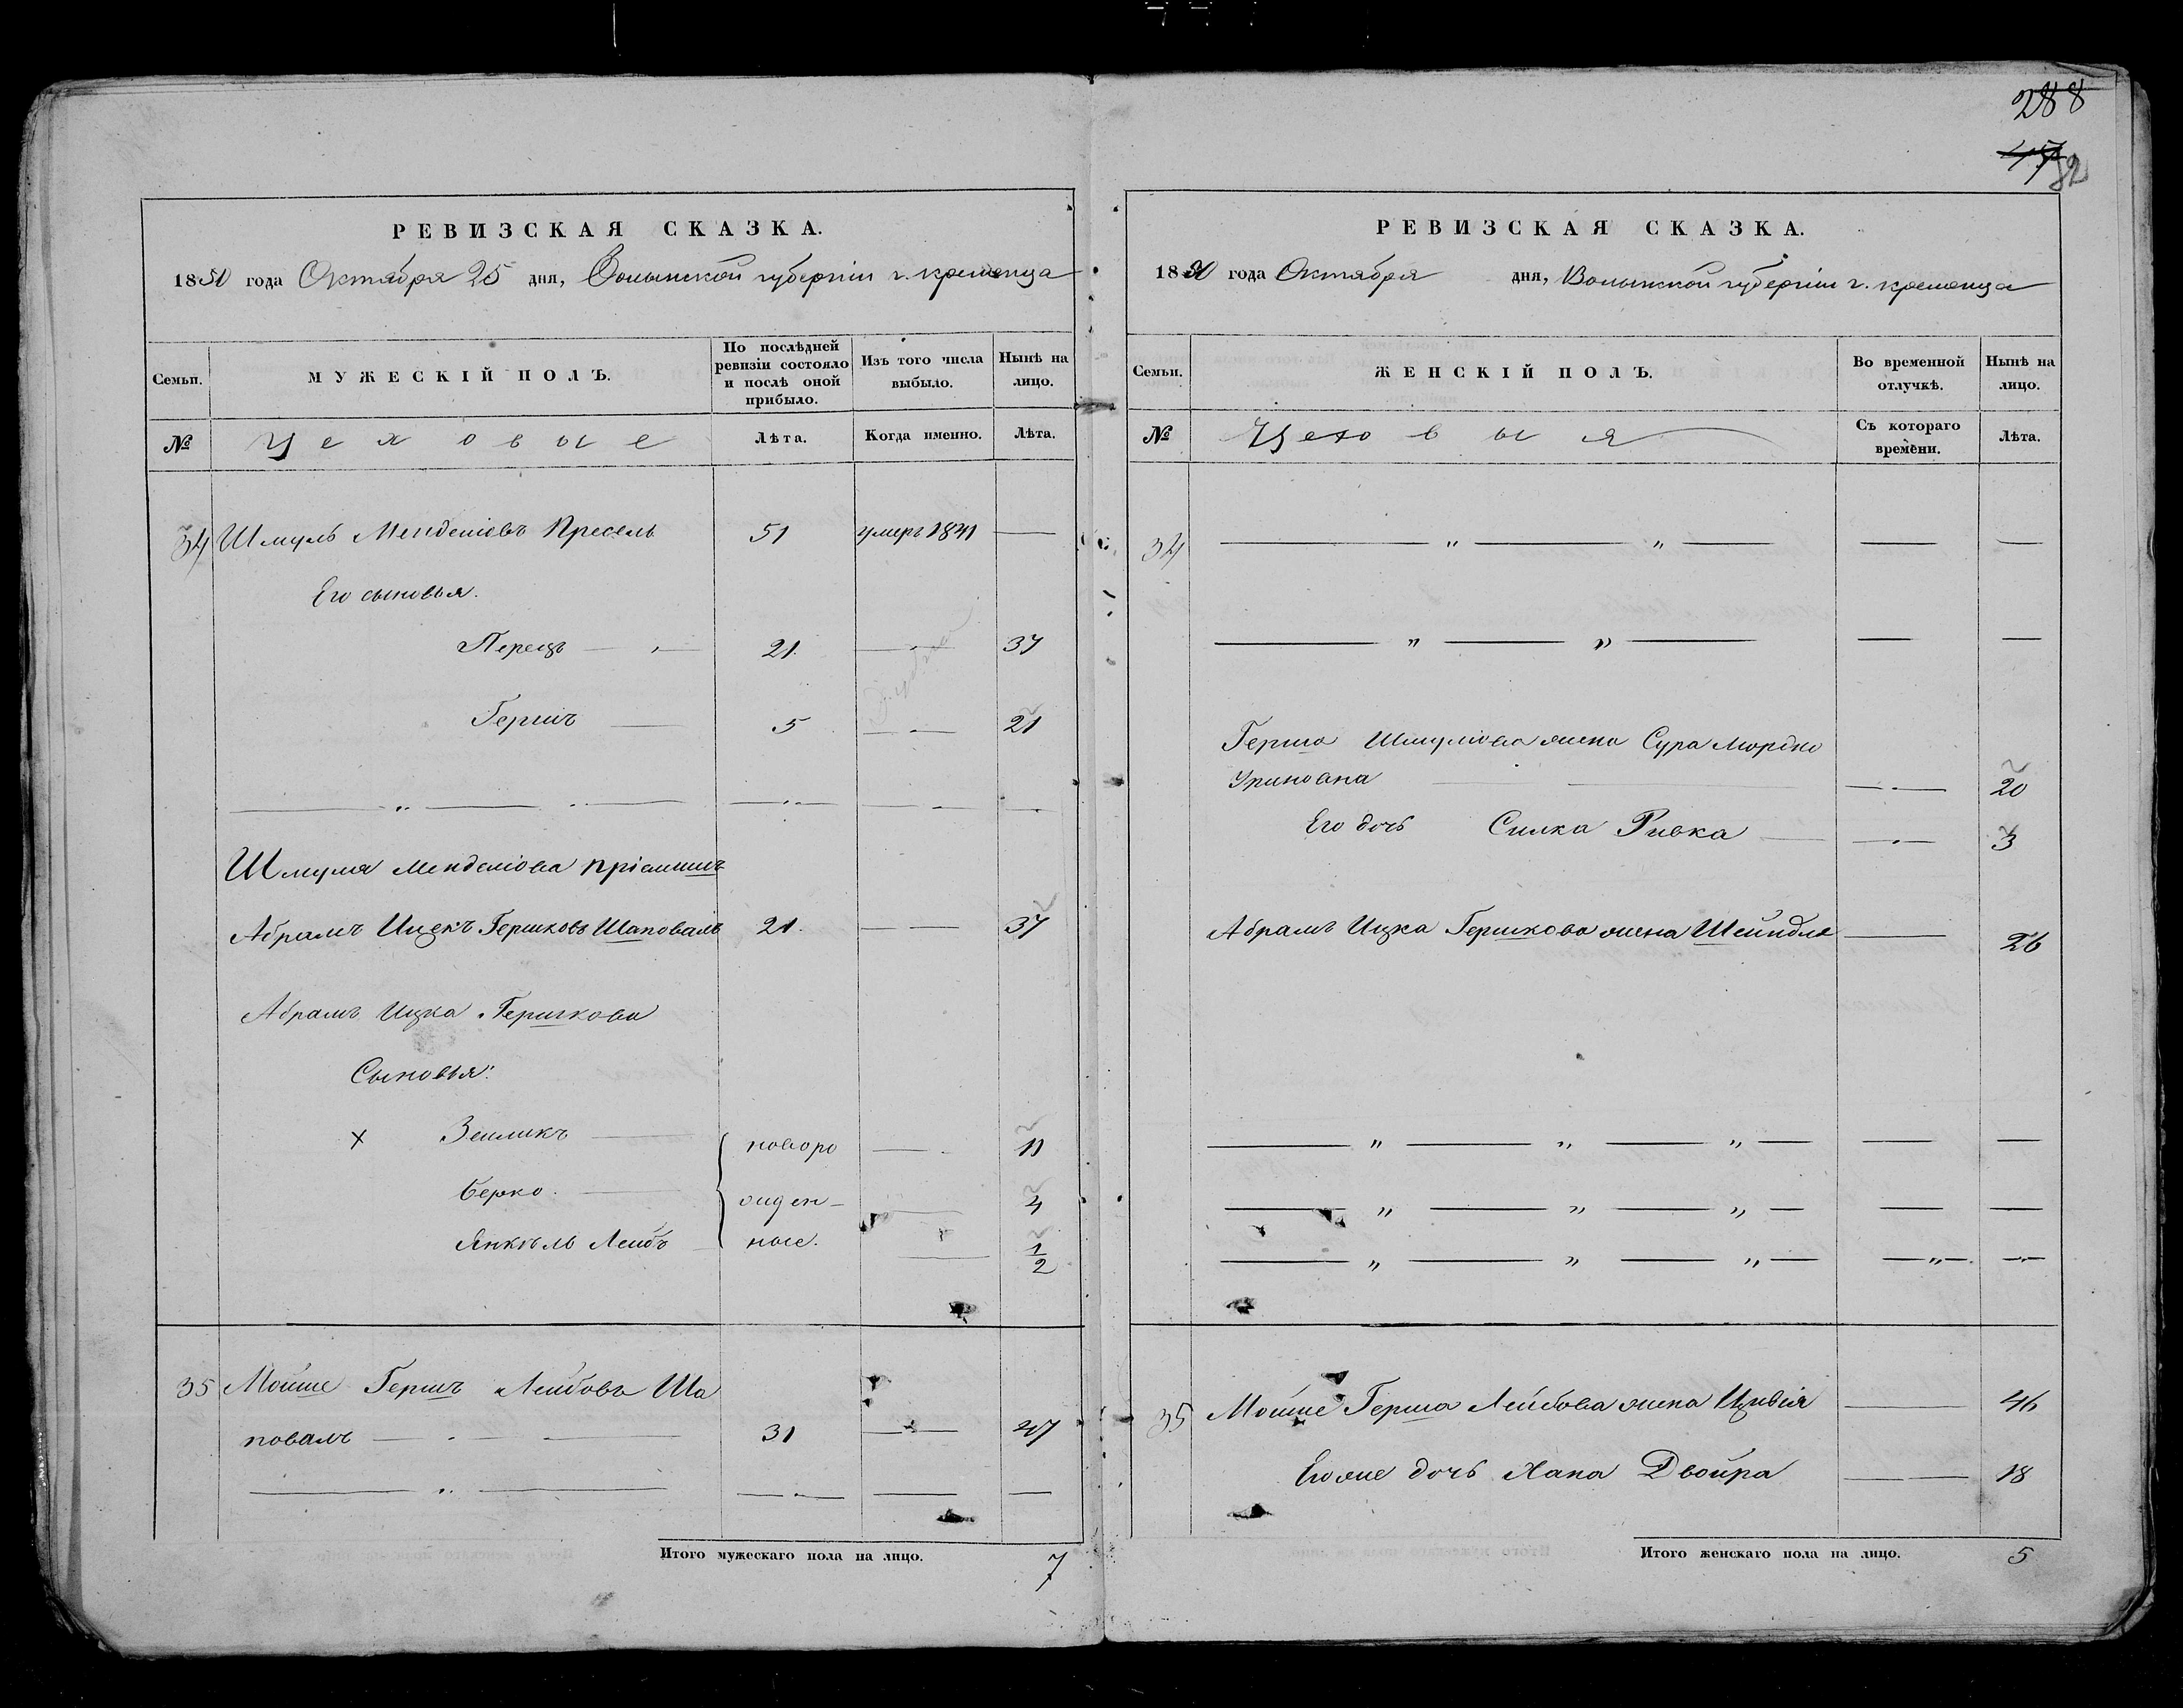 288
47
82
РЕВИЗСКАЯ СКАЗКА.
1850 года Октября 25 дня, Волынской губерніи г. кременца
Семьи. МУЖЕСКІЙ ПОЛЪ. По послѣдней ревизіи состояло и послѣ оной прибыло. Изъ того числа выбыло. Нынѣ на лицо.
№ Цеховые Лѣта. Когда именно. Лѣта.
34 Шмуль Менделіовъ Пресель 51 умеръ 1841 —
Его сыновья.
Перецъ — " — 21. — 37
Гершъ — 5 — 21
Шмуля Менделіова пріемышъ
Абрамъ Ицекъ Гершковъ Шаповалъ 21. — 37
Абрамъ Ицка Гершкова
Сыновья:
× Зейликъ — новоро — 11
Берко. — жден- — 4
Янкель Лейбъ — ные. — 1/2
35 Мойше Гершъ Лейбовъ Ша
повалъ — 31 — 47
Итого мужескаго пола на лицо. 7
РЕВИЗСКАЯ СКАЗКА.
1850 года Октября дня, Волынской губерніи г. кременца
Семьи. ЖЕНСКІЙ ПОЛЪ. Во временной отлучкѣ. Нынѣ на лицо.
№ Цеховыя Съ котораго времени. Лѣта.
34 — " — " — — —
— " — " — — —
Герша Шмуліова жена Сура Мордко
Уриновна — — 20
Его дочь Силка Ривка — — 3
Абрамъ Ицка Гершкова жена Шейндля — 26
— " — " — " — — —
— " — " — " — — —
— " — " — " — — " — — " —
35 Мойше Герша Лейбова жена Цивія — 46
Его же дочь Хана Двойра — 18
Итого женскаго пола на лицо. 5